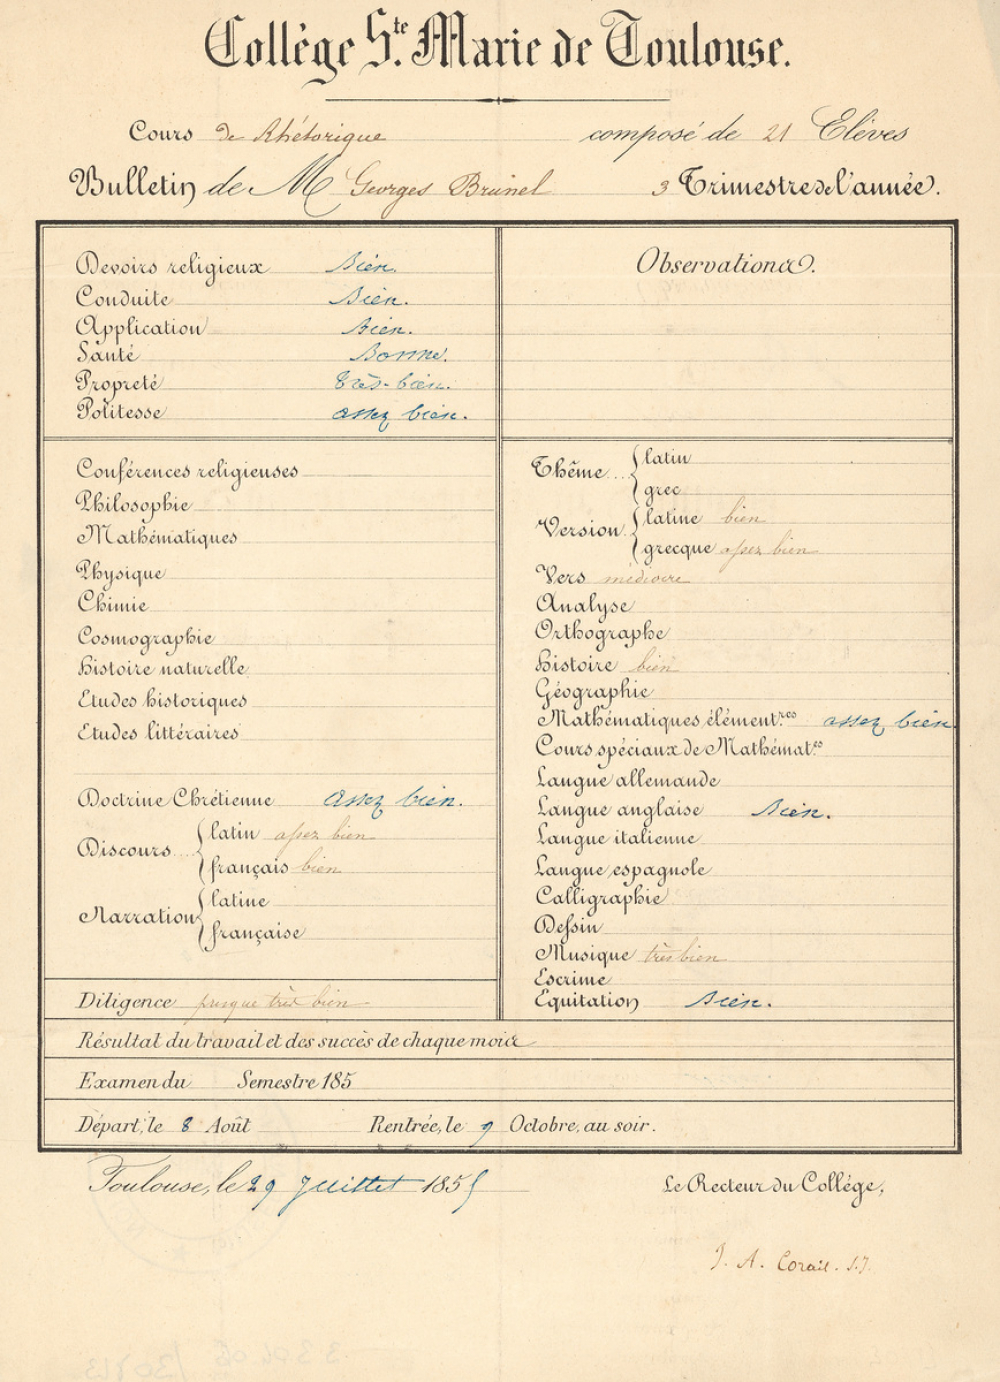 Collège Ste. Marie de Toulouse.
Cours de Rhétorique composé de 21 Elèves
Bulletin de M Georges Brunel 3 Trimestre de l'année.
Devoirs religieux Bien.
Conduite Bien.
Application Bien.
Santé Bonne.
Propreté très-bien.
Politesse assez bien.
Observations.
Conférences religieuses
Philosophie
Mathématiques
Physique
Chimie
Cosmographie
Histoire naturelle
Etudes historiques
Etudes littéraires
Doctrine Chrétienne Assez bien.
Discours latin assez bien
français bien
Narration latine
française
Diligence presque très bien
Thême latin
grec
Version latine bien
grecque assez bien
Vers médiocre
Analyse
Orthographe
Histoire bien
Géographie
Mathématiques élément.res assez bien
Cours spéciaux de Mathémat.es
Langue allemande
Langue anglaise Bien.
Langue italienne
Langue espagnole
Calligraphie
Dessin
Musique très bien
Escrime
Equitation Bien.
Résultat du travail et des succès de chaque mois
Examen du Semestre 185
Départ, le 8 Août Rentrée, le 9 Octobre, au soir.
Toulouse, le 29 Juillet 1855
Le Recteur du Collège,
J. A. Corail. S.J.